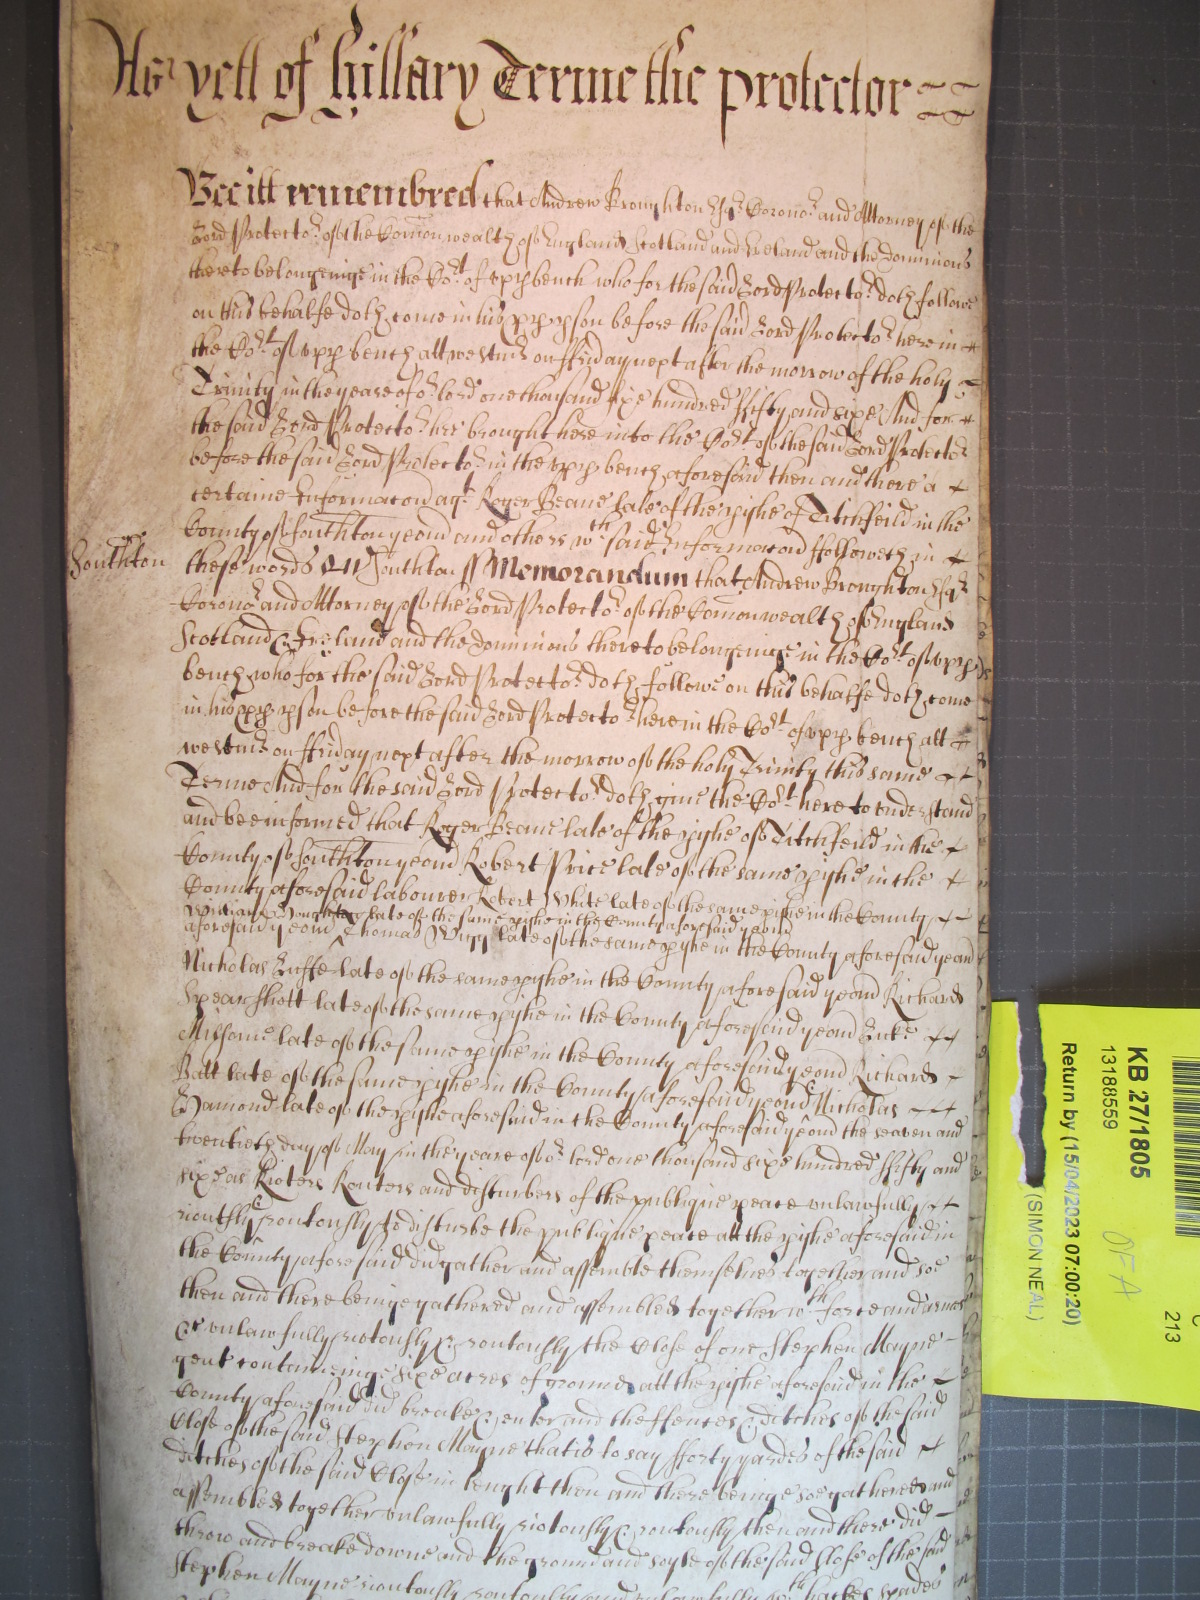 As yett of Hillary Terme the Protector
Bee itt remembred that Andrew Broughton Esqr Corono.r and Attorney of the
Lord Protecto.r of the Comonwealth of England Scotland and Ireland and the dominions
thereto belonginge in the Co.rt of upp bench who for the said Lord Protecto.r doth followe
on this behalfe doth come in his pp pson before the said Lord Protecto.r here in
the Co.rt of upp bench att westmr on ffriday next after the morrow of the holy
Trinity in the yeare of o.r lord one thousand sixe hundred ffifty and sixe And for
the said Lord Protecto.r hee brought here into the Co.rt of the said Lord Protector
before the said Lord Protecto.r in the upp bench aforesaid then and there a
certaine Informacon ag.t Roger Beane late of the pishe of Titchfeild in the
County of Southton yeom and others w.th said Informacon ffolloweth in
Southton
these words Southton ss Memorandum that Andrew Broughton Esqr
Corono.r and Attorney of the Lord Protecto.r of the Comonwealth of England
Scotland & Ireland and the dominions thereto belonginge in the Co.rt of upp
bench who for the said Lord Protecto.r doth followe on this behalfe doth come
in his pp pson before the said Lord Protecto.r here in the Co.rt of upp bench att
westmr on ffriday next after the morrow of the holy Trinity this same
Terme And for the said Lord Protecto.r doth give the Co.rt here to understand
and bee informed that Roger Beane late of the pishe of Titchfeild in the
County of Southton yeom Robert Price late of the same pishe in the
County aforesaid labourer Robert White late of the same pishe in the County
William late of the same pishe in the County aforesaid yeom
aforesaid yeom Thomas late of the same pishe in the County aforesaid yeom
Nicholas late of the same pishe in the County aforesaid yeom Richard
Spearshott late of the same pishe in the County aforesaid yeom Luke
late of the same pishe in the County aforesaid yeom Richard
Ball late of the same pishe in the County aforesaid yeom & Nicholas
Hamond late of the pishe aforesaid in the County aforesaid yeom the seaven and
twentieth day of May in the yeare of o.r lord one thousand sixe hundred ffifty and
sixe as Rioters Routers and disturbers of the publique peace unlawfully
riottously & routously to disturbe the publique peace att the pishe aforesaid in
the County aforesaid did gather and assemble themselves together and soe
then and there beinge gathered and assembled together w.th force and armes
&c unlawfully riotously & routously the Close of one Stephen Mayne
gent conteininge sixe acres of ground att the pishe aforesaid in the
County aforesaid did breake & enter and the ffences & ditches of the said
Close of the said Stephen Mayne that is to say fforty yardes of the said
ditches of the said Close in lenght then and there beinge soe gathered and
assembled together unlawfully riotously & routously then and there did
throw and breake downe and the ground and soyle of the said Close of the said
Stephen Mayne riotously routously and unlawfully w.th spades
KB 27/1805
13188559
Return by (15/04/2023 07:00:20)
(SIMON NEAL)
OFA
213